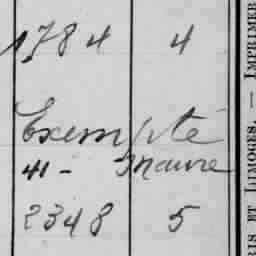 1784 4
Exempté
41 - Mauve
2348 5
RIS ET LIMOGES. — IMPRIMER